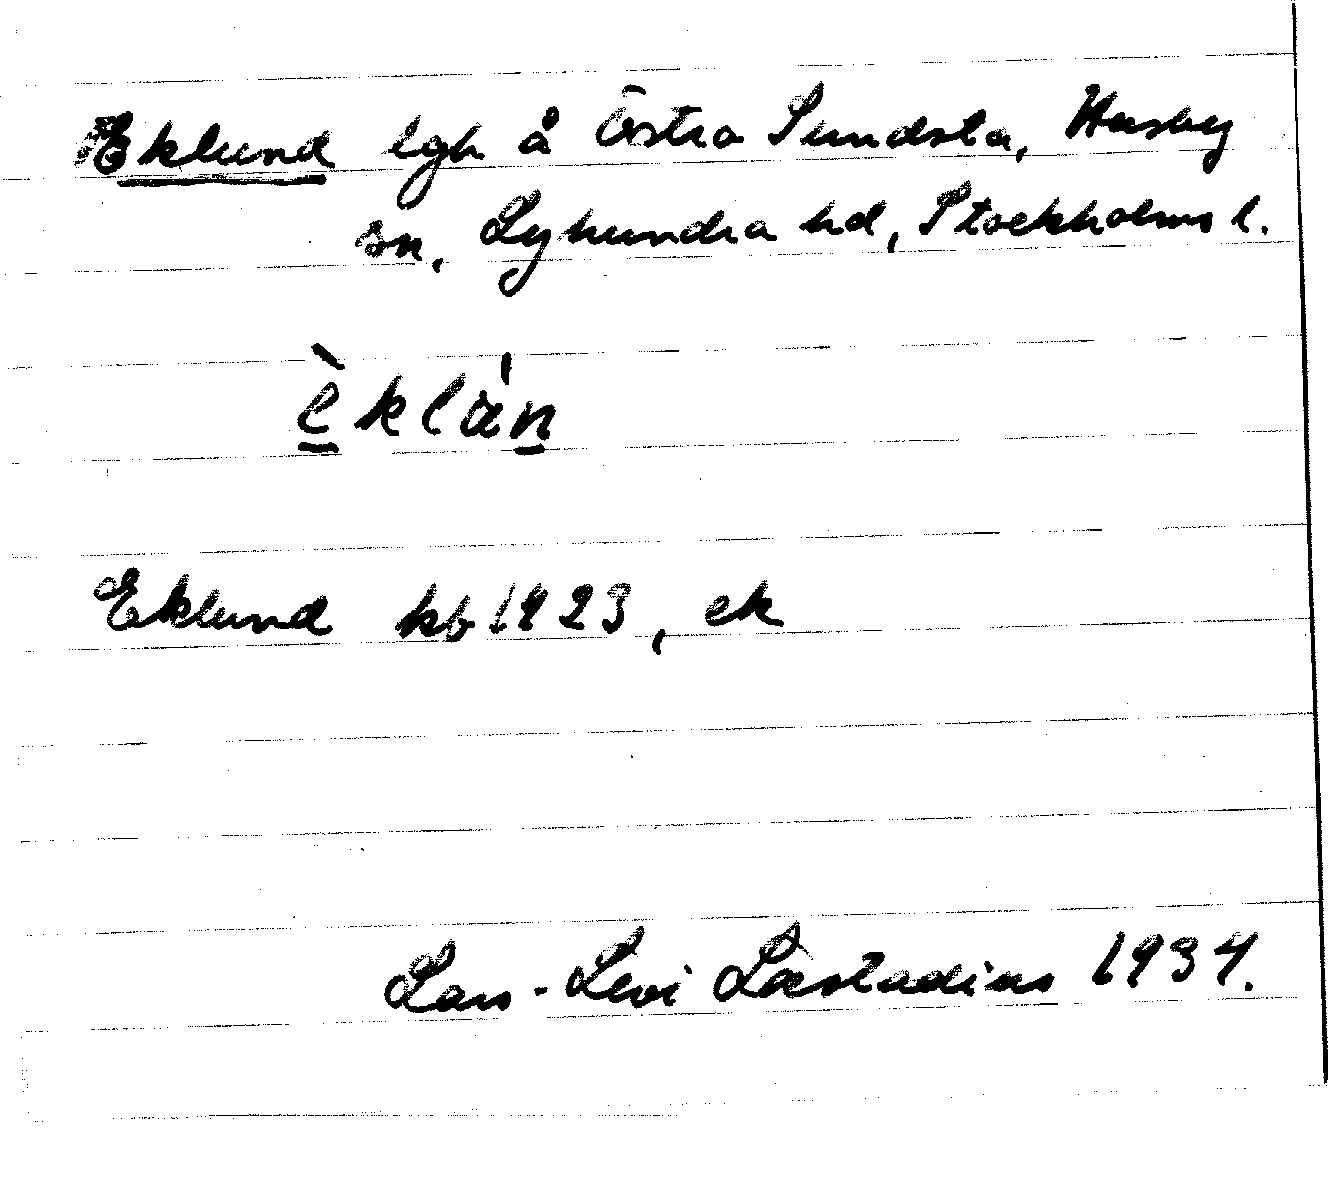 Eklund lgh å Östra Sundsta, Husby
sn, Lyhundra hd, Stockholms l.
è̱klán̠
Eklund kb 1923, ek
Lars-Levi Læstadius 1934.